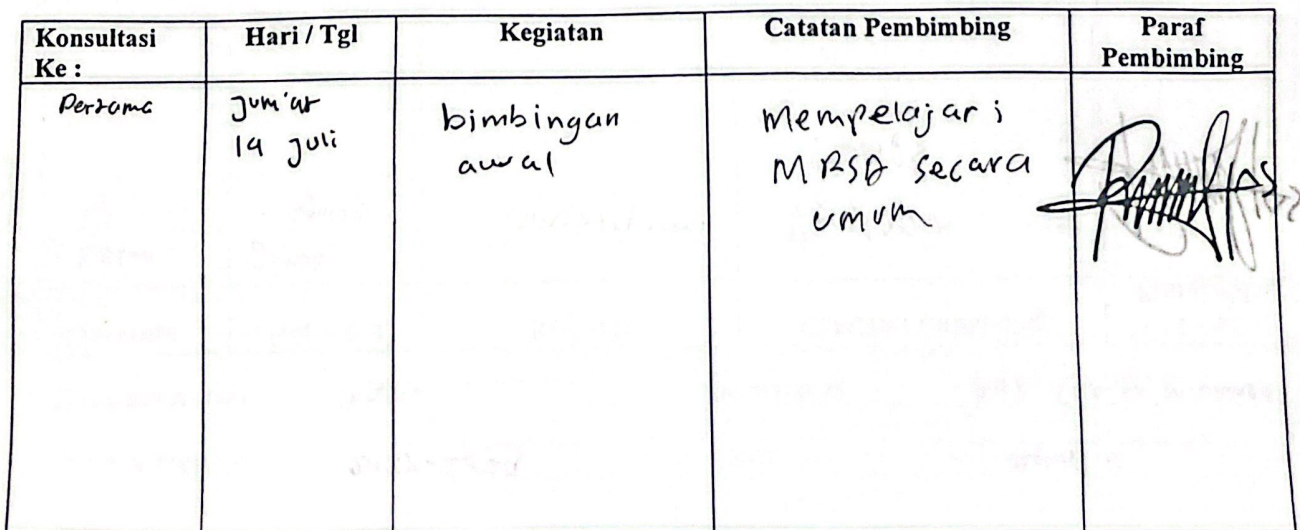 Konsultasi Ke :
Hari / Tgl
Kegiatan
Catatan Pembimbing
Paraf Pembimbing
Pertama
Jum'at
14 Juli
bimbingan
awal
Mempelajari
MRSA secara
umum